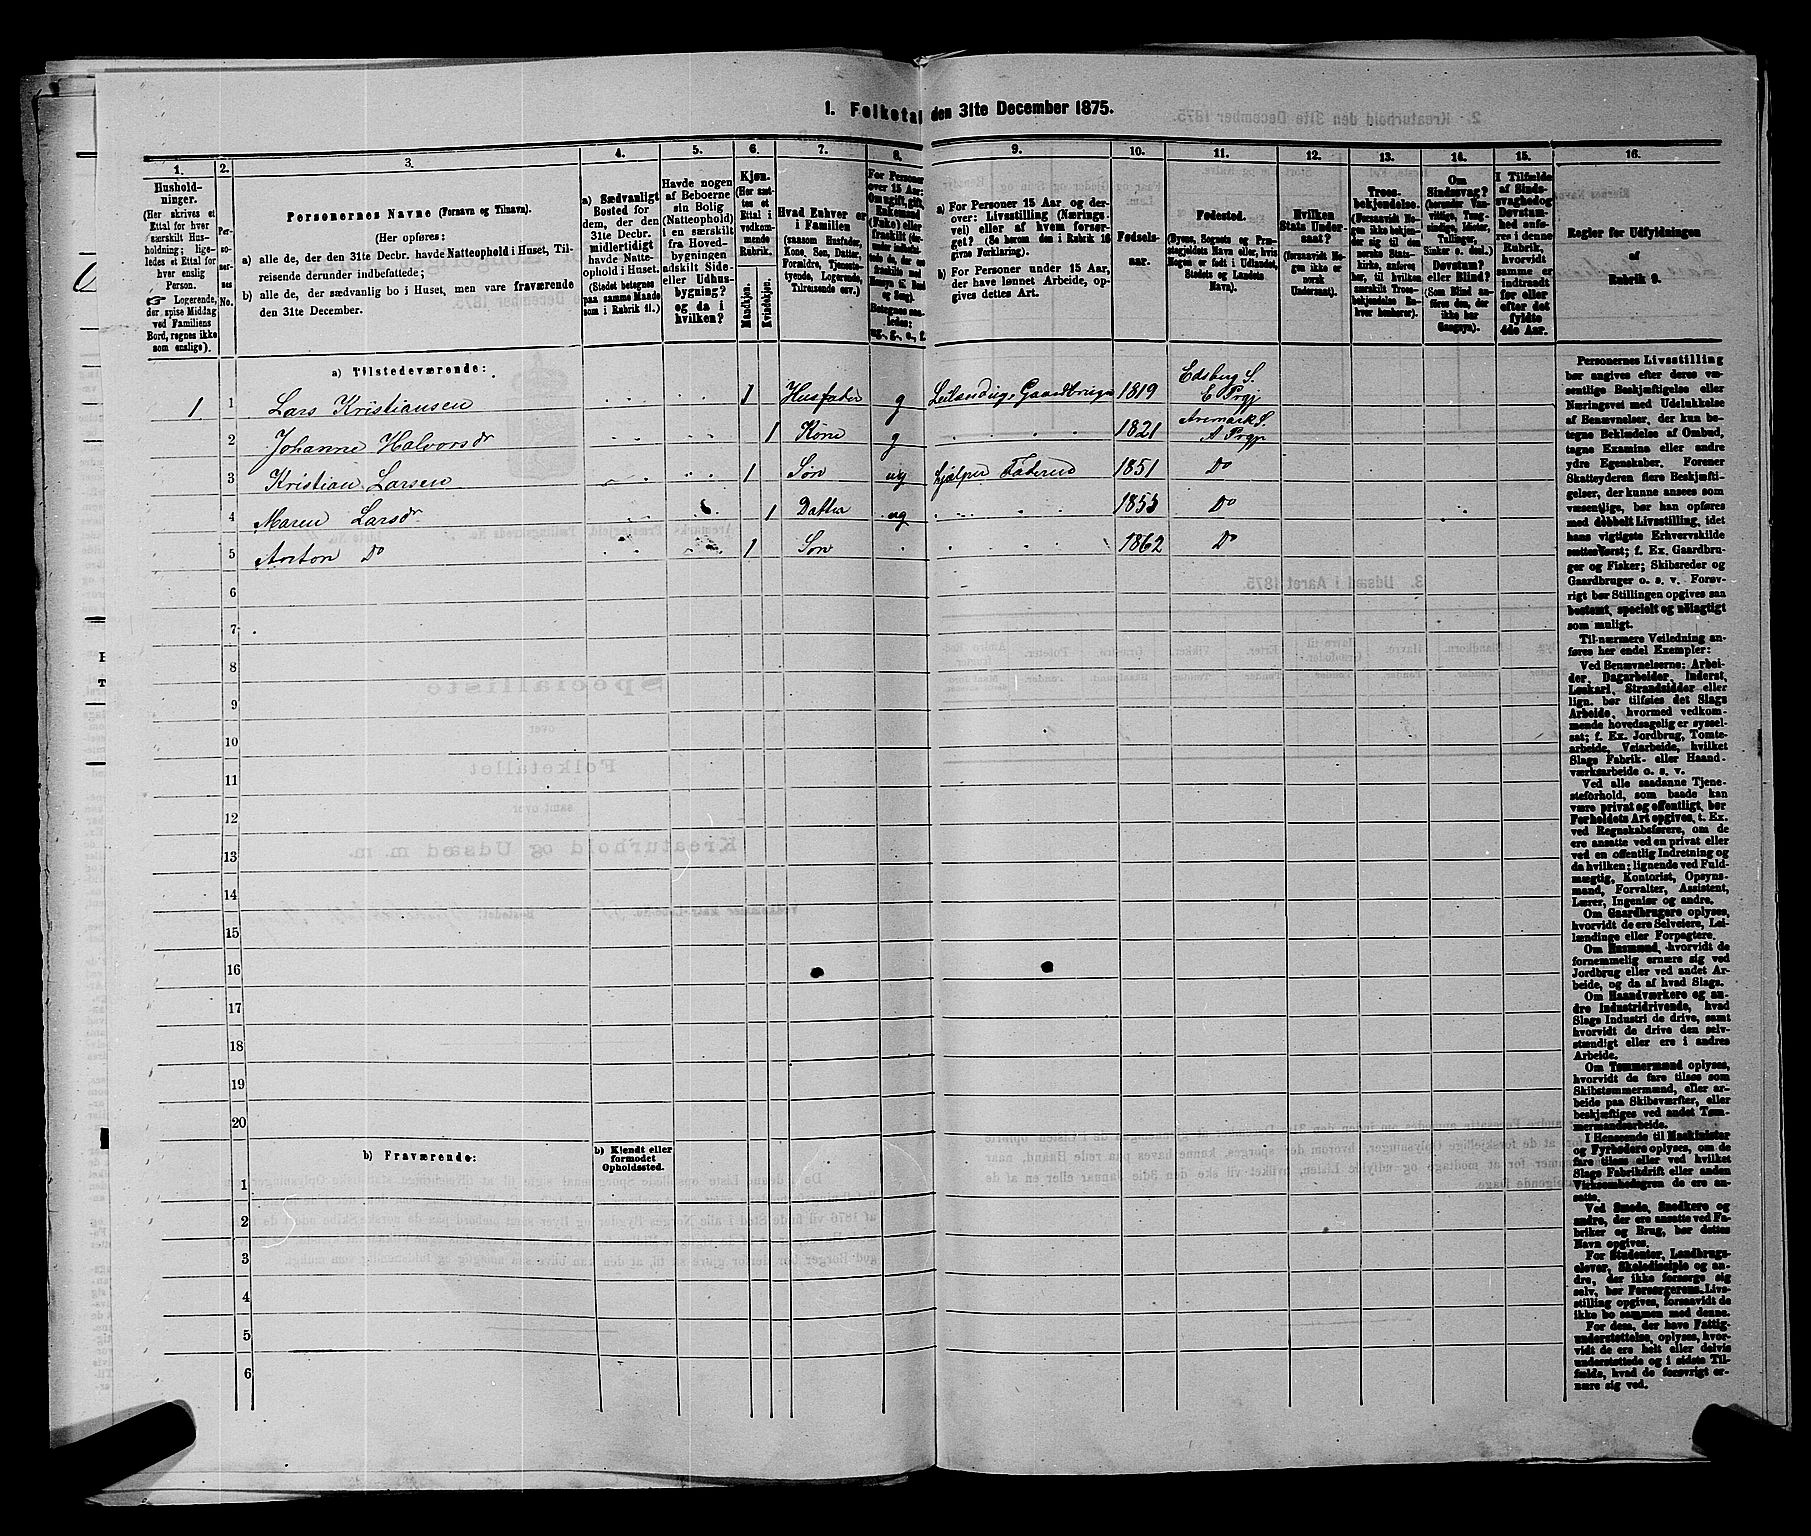 1. Folketal den 31te December 1875.
1.
2.
3.
4.
5.
6.
7.
8.
9.
10.
11.
12.
13.
14.
15.
16.
Hushold-
ninger.
(Her skrives et
Ettal for hver
særskilt Hus-
holdning; lige-
ledes et Ettal for
hver enslig
Person.
☞ Logerende,
der spise Middag
ved Familiens
Bord, regnes ikke
som enslige).
Per-
so-
ner-
nes
No.
Personernes Navne (Fornavn og Tilnavn).
(Her opføres:
a) alle de, der den 31te Decbr. havde Natteophold i Huset, Til-
reisende derunder indbefattede;
b) alle de, der sædvanlig bo i Huset, men vare fraværende
den 31te December.
a) Sædvanligt
Bosted for
dem, der den
31te Decbr.
midlertidigt
havde Natte-
ophold i Huset.
(Stedet betegnes
paa samme Maade
som i Rubrik 11.)
Havde nogen
af Beboerne
sin Bolig
(Natteophold)
i en særskilt
fra Hoved-
bygningen
adskilt Side-
eller Udhus-
bygning?
og da i
hvilken?
Kjøn.
(Her sæt-
tes et
Ettal i
vedkom-
mende
Rubrik.
Mandkjøn.
Kvindekjøn.
Hvad Enhver er
i Familien
(saasom Husfader,
Kone, Søn, Datter,
Forældre, Tjeneste-
tyende, Logerende,
Tilreisende osv.)
For Personer
over 15 Aar:
Om ugift, gift,
Enkemand
(Enke) eller
fraskilt
a) For Personer 15 Aar og der-
over: Livsstilling (Nærings-
vei) eller af hvem forsør-
get? (Se herom den i Rubrik 16
givne Forklaring).
b) For Personer under 15 Aar,
der have lønnet Arbeide, op-
gives dettes Art.
Fødsels-
aar.
Fødested.
(Byens, Sognets og Præ-
stegjeldets Navn eller, hvis
Nogen er født i Udlandet,
Stedets og Landets
Navn).
Hvilken
Stats Under-
saat?
(forsaavidt No-
gen ikke er
norsk
Undersaat).
Troes-
bekjendelse.
(Forsaavidt No-
gen ikke bekjen-
der sig til den
norske Stats-
kirke, anføres
her, til hvilken
særskilt Troes-
bekjendelse En-
hver henhører).
Om
Sindssvag?
(herunder Van-
vittige, Tung-
sindige, Idioter,
Tullinger,
Sinker o. desl.)
Døvstum?
eller Blind?
(Som Blind an-
føres den, der
ikke har
Gangsyn).
I Tilfælde
af Sinds-
svaghed og
Døvstum-
hed anfø-
res i denne
Rubrik,
hvorvidt
samme er
indtraadt
før eller
efter det
fyldte
4de Aar.
Regler for Udfyldningen
af
Rubrik 9.
a) Tilstedeværende:
1 1 Lars Kristiansen 1 Husfader g Leilændig Gaardbruger 1819 Edsberg S. E Prgj
2 Johanne Halvorsdr 1 Kone g 1821 Aremark S. A Prgj
3 Kristian Larsen 1 Søn ug hjælper Faderen 1851 Do
4 Maren Larsdr 1 Datter ug 1853 Do
5 Anton Do 1 Søn 1862 Do
6
7
8
9
10
11
12
13
14
15
16
17
18
19
20
b) Fraværende:
b) Kjendt eller
formodet
Opholdssted.
1
2
3
4
5
6
Personernes Livsstilling
bør angives efter deres væ-
sentlige Beskjæftigelse eller
Næringsvei med Udelukkelse
af Benævnelser, der kun be-
tegne Beklædelse af Ombud,
tagne Examina eller andre
ydre Egenskaber. Forener
Skatteyderen flere Beskjæfti-
gelser, der kunne ansees som
væsentlige, bør han opføres
med dobbelt Livsstilling, idet
hans vigtigste Erhvervskilde
sættes først; f. Ex. Gaardbru-
ger og Fisker; Skibsreder og
Gaardbruger o. s. v. Forøv-
rigt bør Stillingen opgives saa
bestemt, specielt og nøiagtigt
som muligt.
Til nærmere Veiledning an-
føres her endel Exempler:
Ved Benævnelserne: Arbei-
der, Dagarbeider, Inderst,
Løskarl, Strandsidder eller
lign. bør tilføies det Slags
Arbeide, hvormed vedkom-
mende hovedsagelig er syssel-
sat; f. Ex. Jordbrug, Tomte-
arbeide, Veiarbeide, hvilket
Slags Fabrik- eller Haand-
værksarbeide o. s. v.
Ved alle saadanne Tjene-
steforhold, som baade kan
være privat og offentligt, bør
Forholdets Art opgives, t. Ex.
ved Regnskabsførere, om de
ere ansatte ved en privat eller
ved en offentlig Indretning og
da hvilken; lignende ved Fuld-
mægtig, Kontorist, Opsyns-
mand, Forvalter, Assistent,
Lærer, Ingeniør og andre.
Om Gaardbrugere oplyses,
hvorvidt de ere Selveiere, Lei-
lændinge eller Forpagtere.
Om Husmænd, hvorvidt de
fornemmelig ernære sig ved
Jordbrug eller ved andet Ar-
beide, og da af hvad Slags.
Om Haandværkere og an-
dre Industridrivende, hvad
Slags Industri de drive, samt
hvorvidt de drive den selv-
stændigt eller ere i andres
Arbeide.
Om Tømmermænd oplyses,
hvorvidt de fare tilsøs som
Skibstømmermænd, eller ar-
beide paa Skibsværfter, eller
beskjæftiges ved andet Tøm-
mermandsarbeide.
I Henseende til Maskinister
og Fyrbødere oplyses, om de
fare tilsøs eller ved hvilket
Slags Fabrikdrift eller anden
Virksomhedsgren de ere an-
satte.
Ved Smede, Snedkere og
andre, der ere ansatte ved Fa-
briker og Brug, bør dettes
Navn opgives.
For Studenter, Landbrugs-
elever, Skoledisciple og an-
dre, der ikke forsørge sig
selv, bør Forsørgerens Livs-
stilling opgives, forsaavidt de
ikke bo sammen med denne.
For dem, der have Fattig-
understøttelse, oplyses, hvor-
vidt de ere helt eller delvis
understøttede og i sidste Til-
fælde, hvad de forøvrigt er-
nære sig ved.